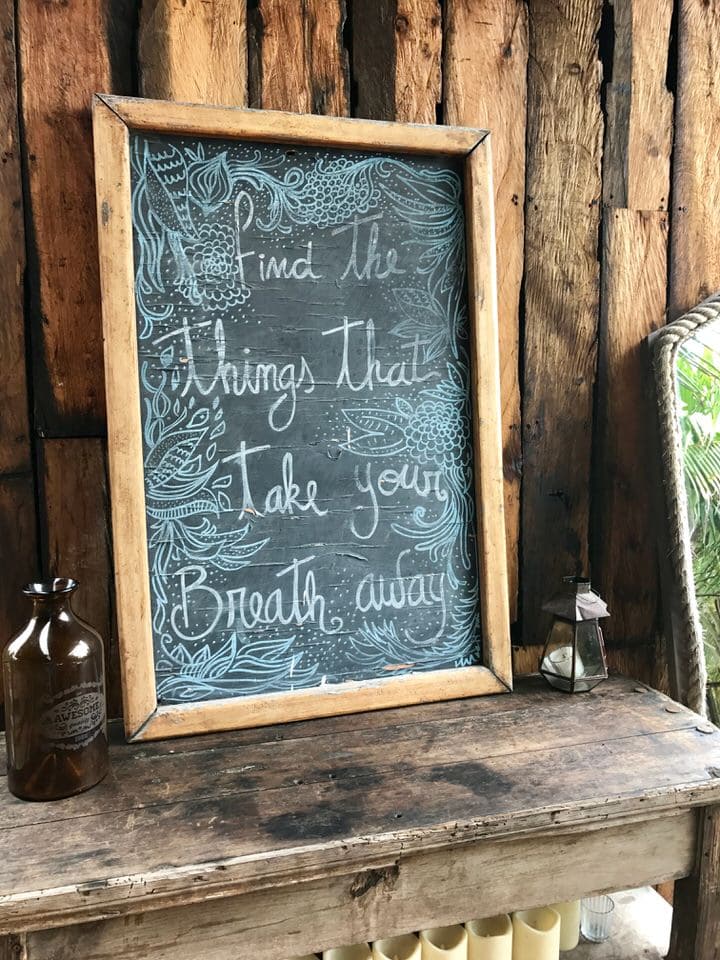 find the
things that
take your
Breath away
AWESOME